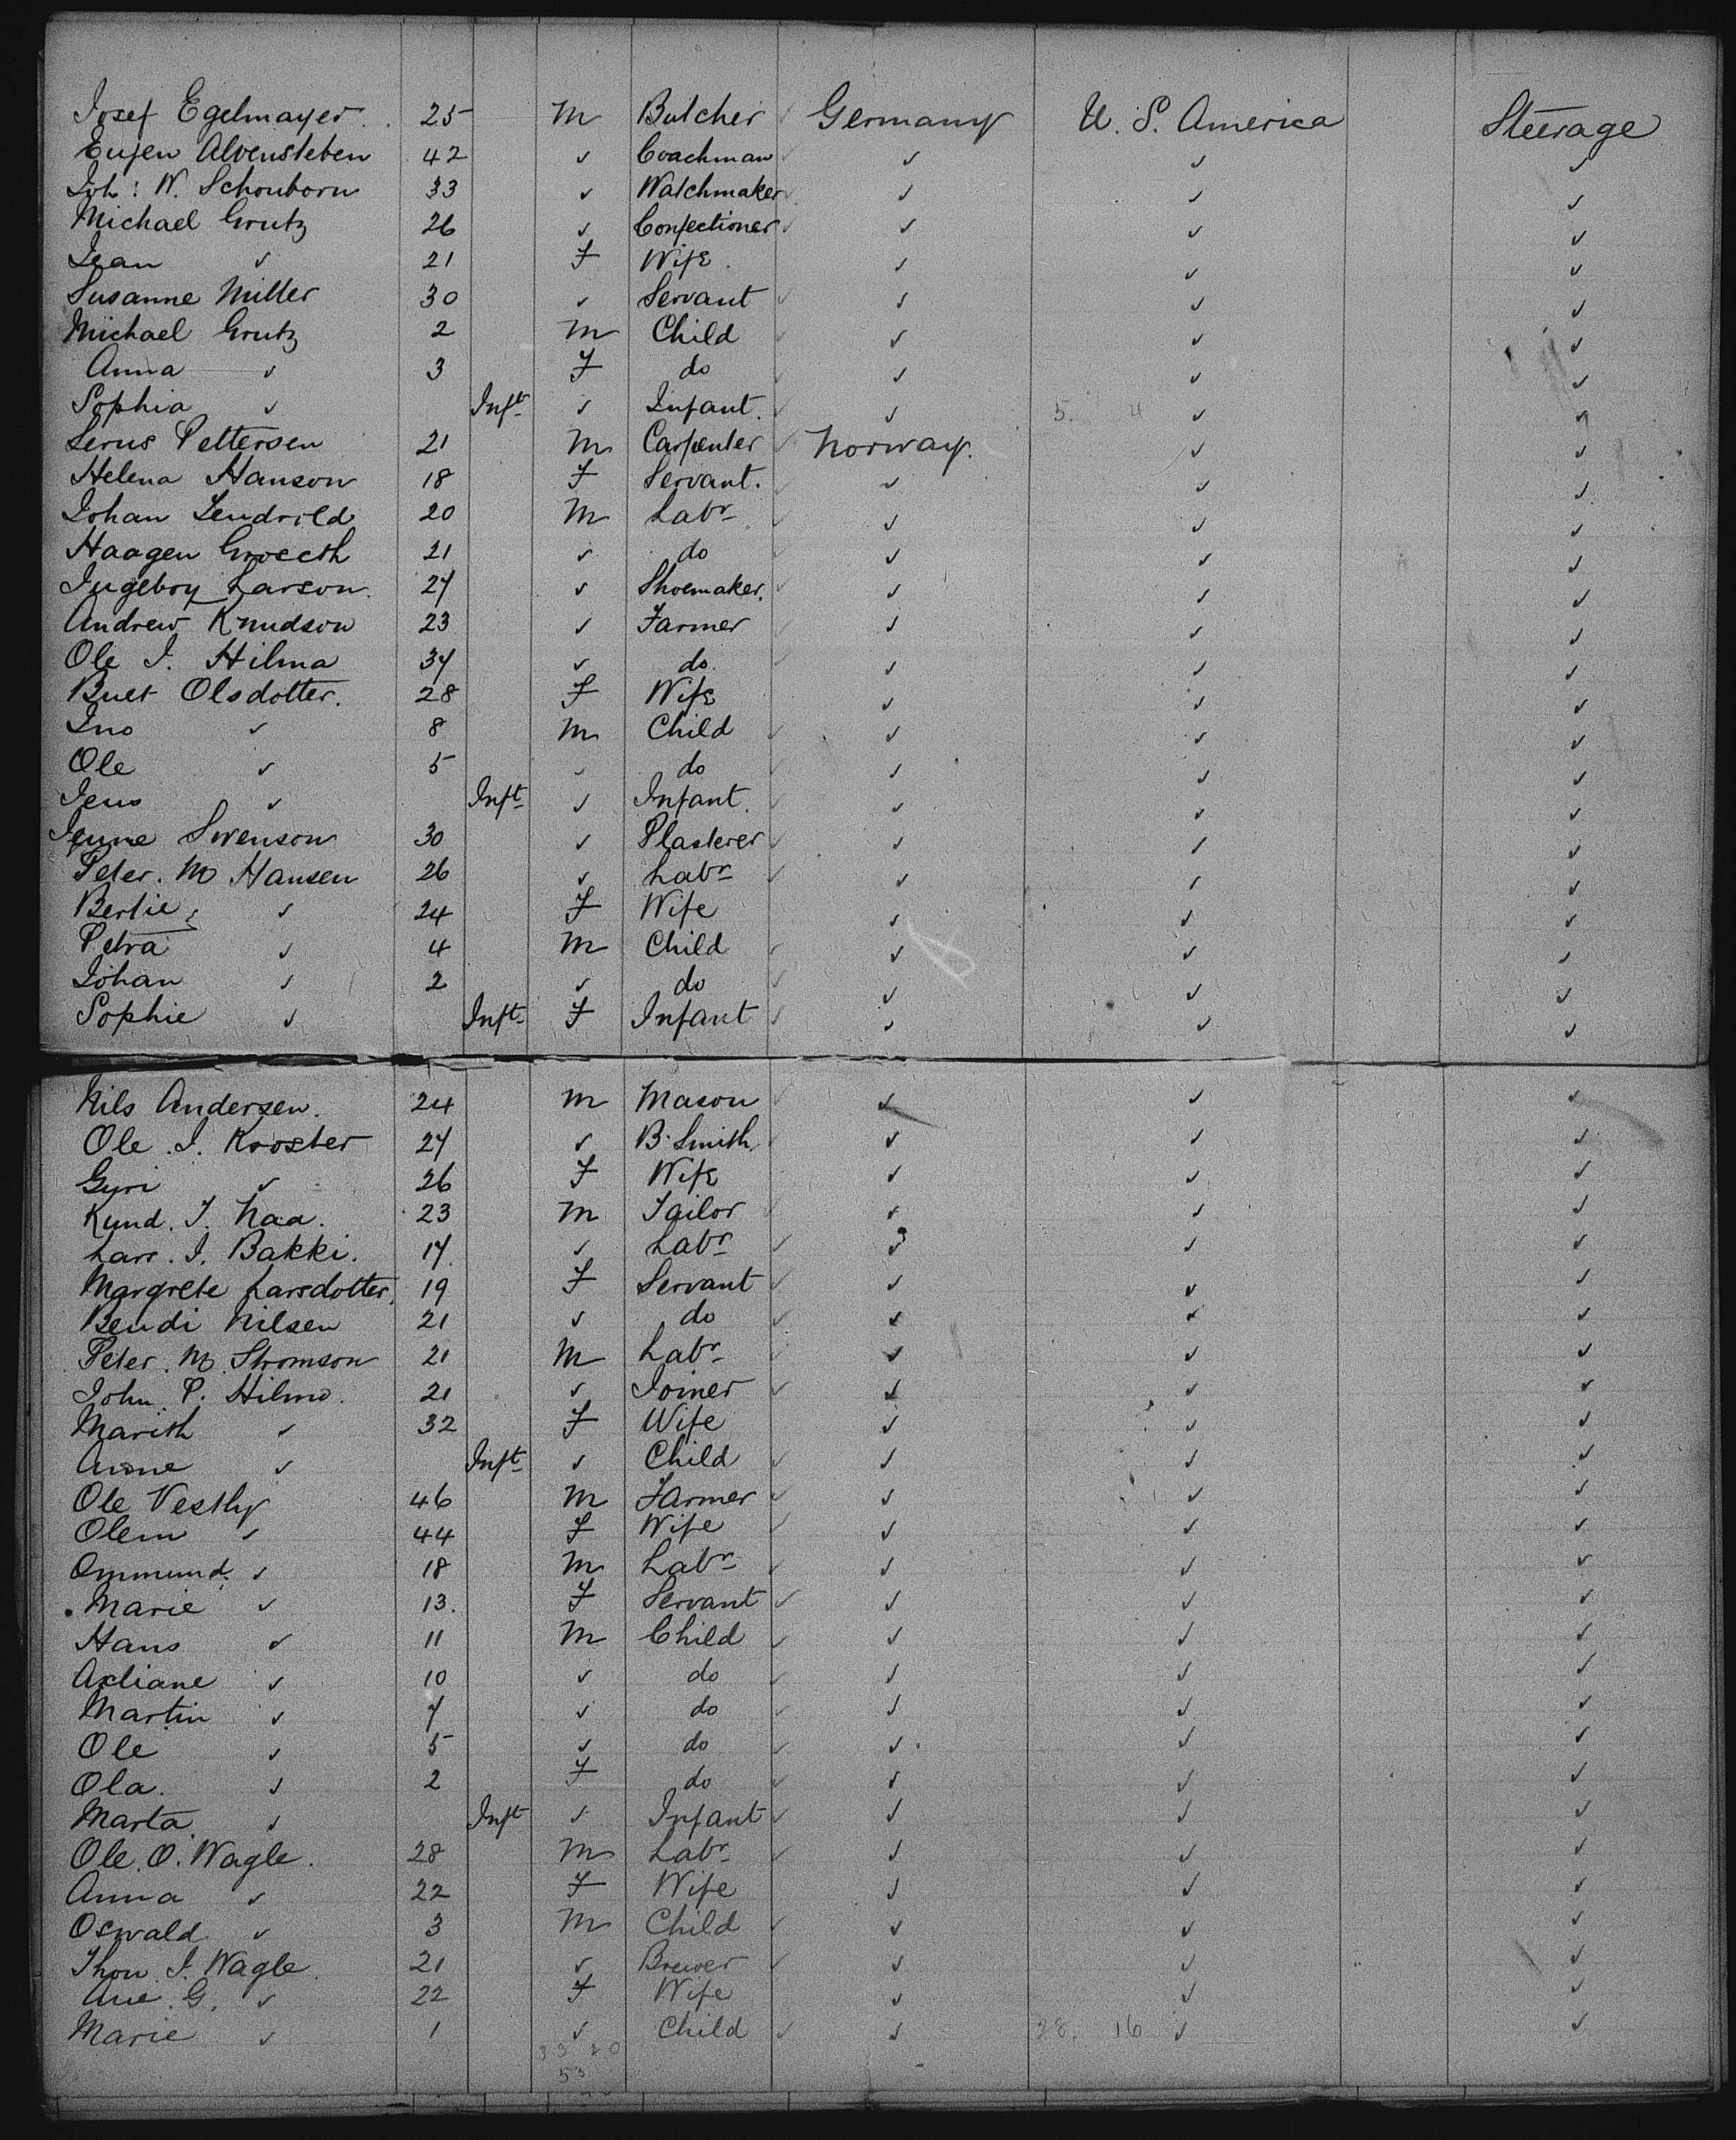 Josef Egelmayer. 25 M Butcher ✓ Germany U. S. America Steerage
Eugen Alvensleben 42 ✓ Coachman ✓ ✓ ✓ ✓
Joh: W. Schonborn 33 ✓ Watchmaker ✓ ✓ ✓ ✓
Michael Grutz 26 ✓ Confectioner ✓ ✓ ✓ ✓
Jean ✓ 21 F Wife. ✓ ✓ ✓
Susanne Miller 30 ✓ Servant ✓ ✓ ✓ ✓
Michael Grutz 2 M Child ✓ ✓ ✓ ✓
Anna ✓ 3 F do ✓ ✓ ✓ ✓
Sophia ✓ Inft ✓ Infant. ✓ ✓ 5. 4 ✓ ✓
Serus Pettersen 21 M Carpenter ✓ Norway. ✓ ✓
Helena Hanson 18 F Servant. ✓ ✓ ✓ ✓
Johan Lendrild 20 M Labr ✓ ✓ ✓ ✓
Haagen 21 ✓ do ✓ ✓ ✓ ✓
Ingebry Larson. 27 ✓ Shoemaker. ✓ ✓ ✓ ✓
Andrew Knudson 23 ✓ Farmer ✓ ✓ ✓ ✓
Ole I. Hilma 37 ✓ do. ✓ ✓ ✓ ✓
Buet Olsdotter. 28 F Wife ✓ ✓ ✓
Ino ✓ 8 M Child ✓ ✓ ✓ ✓
Ole ✓ 5 ✓ do ✓ ✓ ✓ ✓
Jens ✓ Inft ✓ Infant. ✓ ✓ ✓ ✓
Jenne Swenson 30 ✓ Plasterer ✓ ✓ ✓ ✓
Peter. M Hansen 26 ✓ Labr ✓ ✓ ✓ ✓
Bertie ✓ 24 F Wife ✓ ✓ ✓
Petra ✓ 4 M Child ✓ ✓ ✓ ✓
Johan ✓ 2 ✓ do ✓ ✓ ✓ ✓
Sophie ✓ Inft F Infant ✓ ✓ ✓ ✓
Nils Andersen. 24 M Mason ✓ ✓ ✓ ✓
Ole. I. Kroster 27 ✓ B. Smith ✓ ✓ ✓ ✓
Guri ✓ 26 F Wife ✓ ✓ ✓
Kund. I. Naa. 23 M Tailor ✓ ✓ ✓ ✓
Lars. I. Bakki. 17. ✓ Labr ✓ ✓ ✓ ✓
Margrete Larsdotter. 19 F Servant ✓ ✓ ✓ ✓
Bendi Nilsen 21 ✓ do ✓ ✓ ✓ ✓
Peter. M. Stromson 21 M Labr ✓ ✓ ✓ ✓
John. P. Hilmo. 21 ✓ Joiner ✓ ✓ ✓ ✓
Marith ✓ 32 F Wife ✓ ✓ ✓
Anne ✓ Inft ✓ Child ✓ ✓ ✓ ✓
Ole Vestly 46 M Farmer ✓ ✓ ✓ ✓
Olem ✓ 44 F Wife ✓ ✓ ✓ ✓
Ommund. ✓ 18 M Labr ✓ ✓ ✓ ✓
Marie ✓ 13. F Servant ✓ ✓ ✓ ✓
Hans ✓ 11 M Child ✓ ✓ ✓ ✓
Adiane ✓ 10 ✓ do ✓ ✓ ✓ ✓
Martin ✓ 7 ✓ do ✓ ✓ ✓ ✓
Ole ✓ 5 ✓ do ✓ ✓ ✓ ✓
Ola. ✓ 2 F do ✓ ✓ ✓ ✓
Marta ✓ Inft ✓ Infant ✓ ✓ ✓ ✓
Ole. O. Wagle. 28 M Labr ✓ ✓ ✓ ✓
Anna ✓ 22 F Wife ✓ ✓ ✓
Oswald ✓ 3 M Child ✓ ✓ ✓ ✓
Thon. I. Wagle. 21 ✓ Brewer ✓ ✓ ✓ ✓
Ane. G. ✓ 22 F Wife ✓ ✓ ✓
Marie ✓ 1 ✓ Child ✓ ✓ 28. 16 ✓ ✓
33 20
53